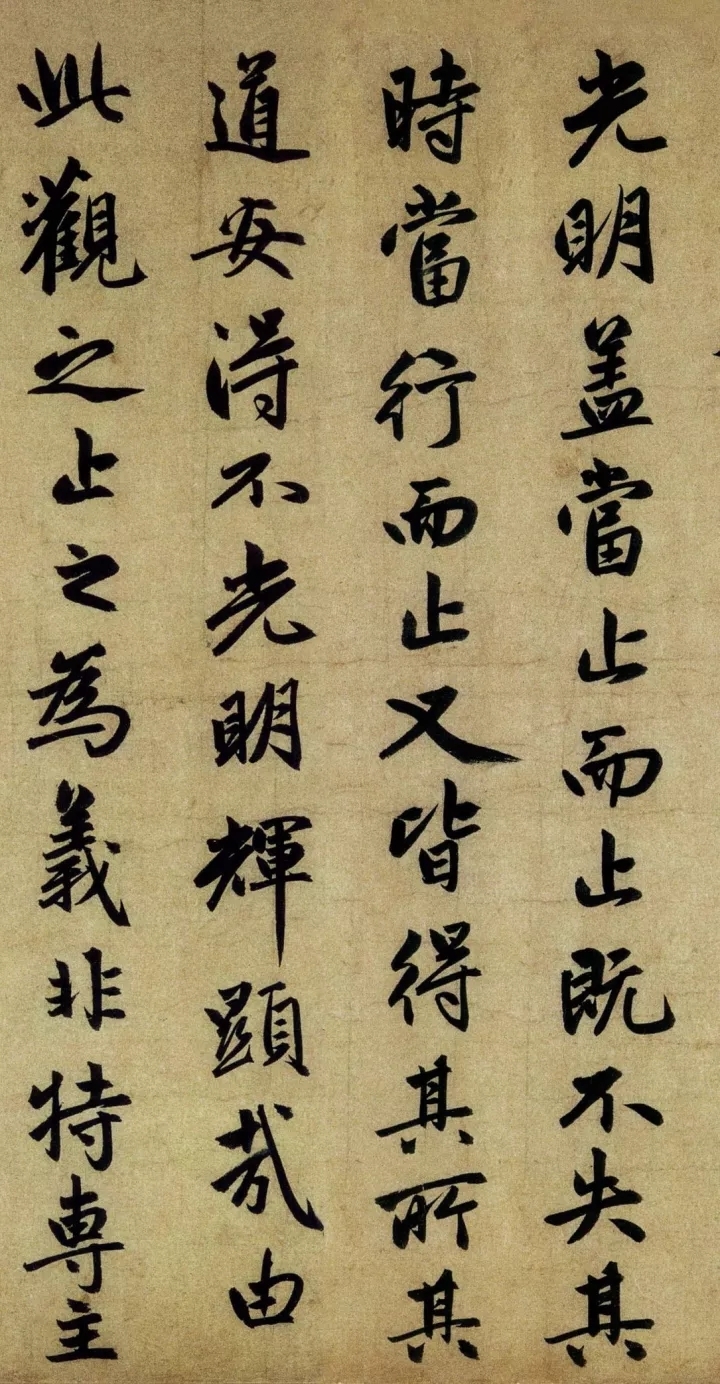 光明盖當止而止既不失其
時當行而止又皆得其所其
道安得不光明輝顯哉由
此觀之止之為義非特專主